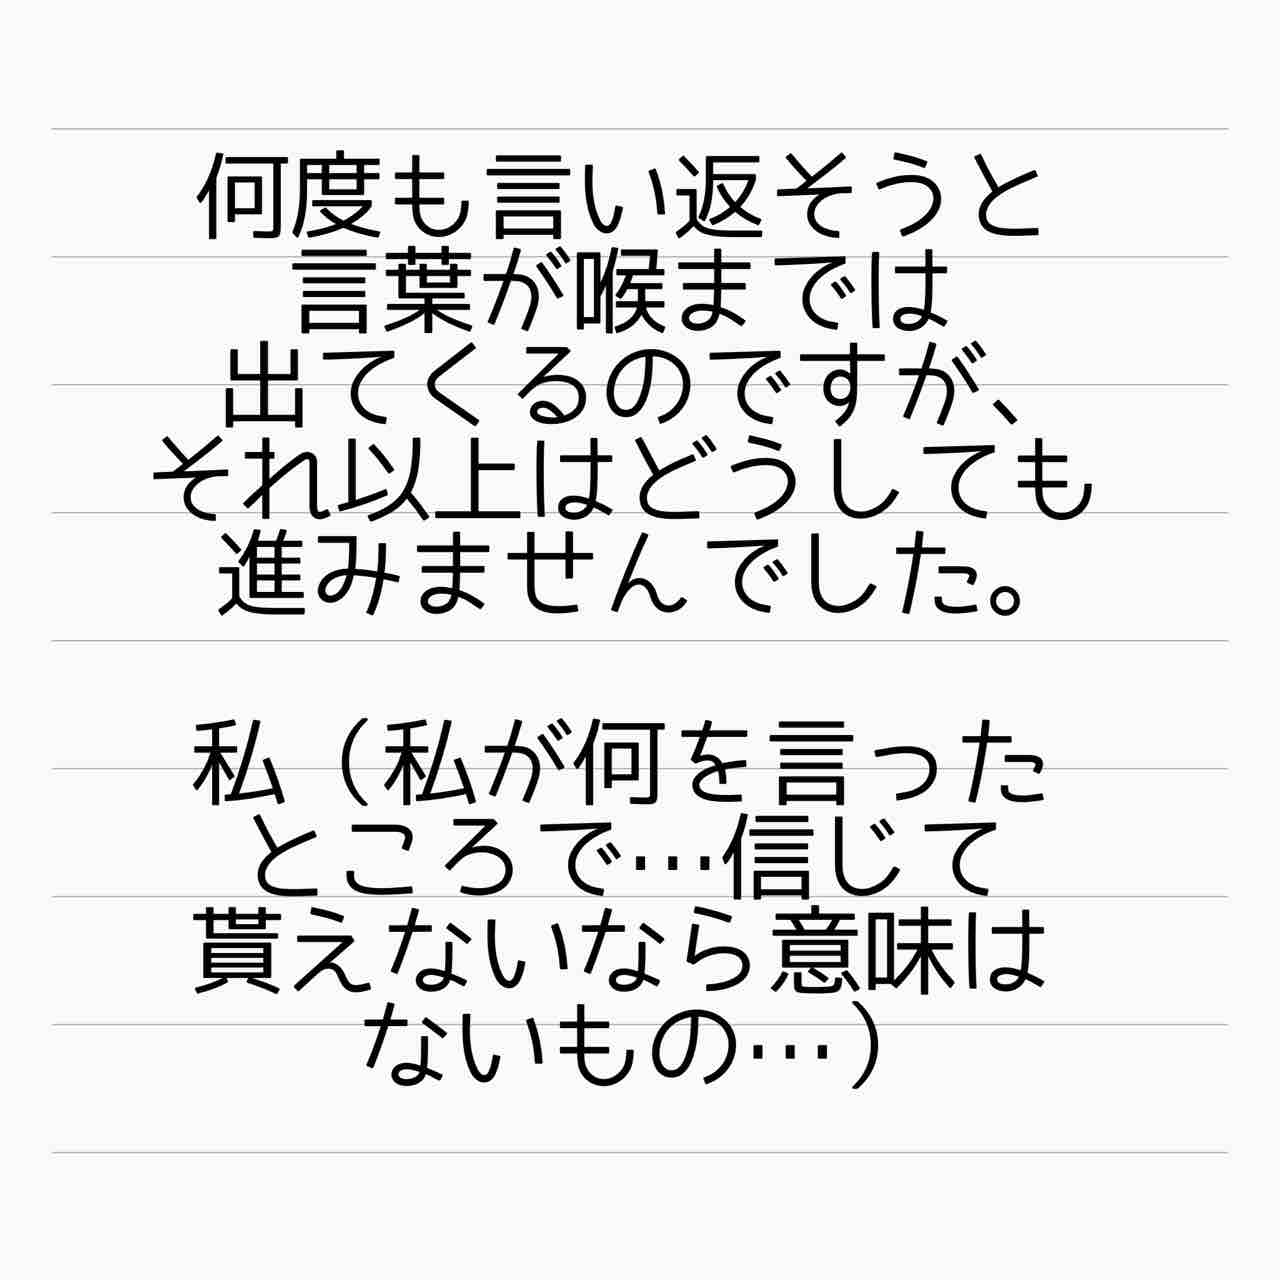 何度も言い返そうと
言葉が喉までは
出てくるのですが、
それ以上はどうしても
進みませんでした。
私（私が何を言った
ところで…信じて
貰えないなら意味は
ないもの…）